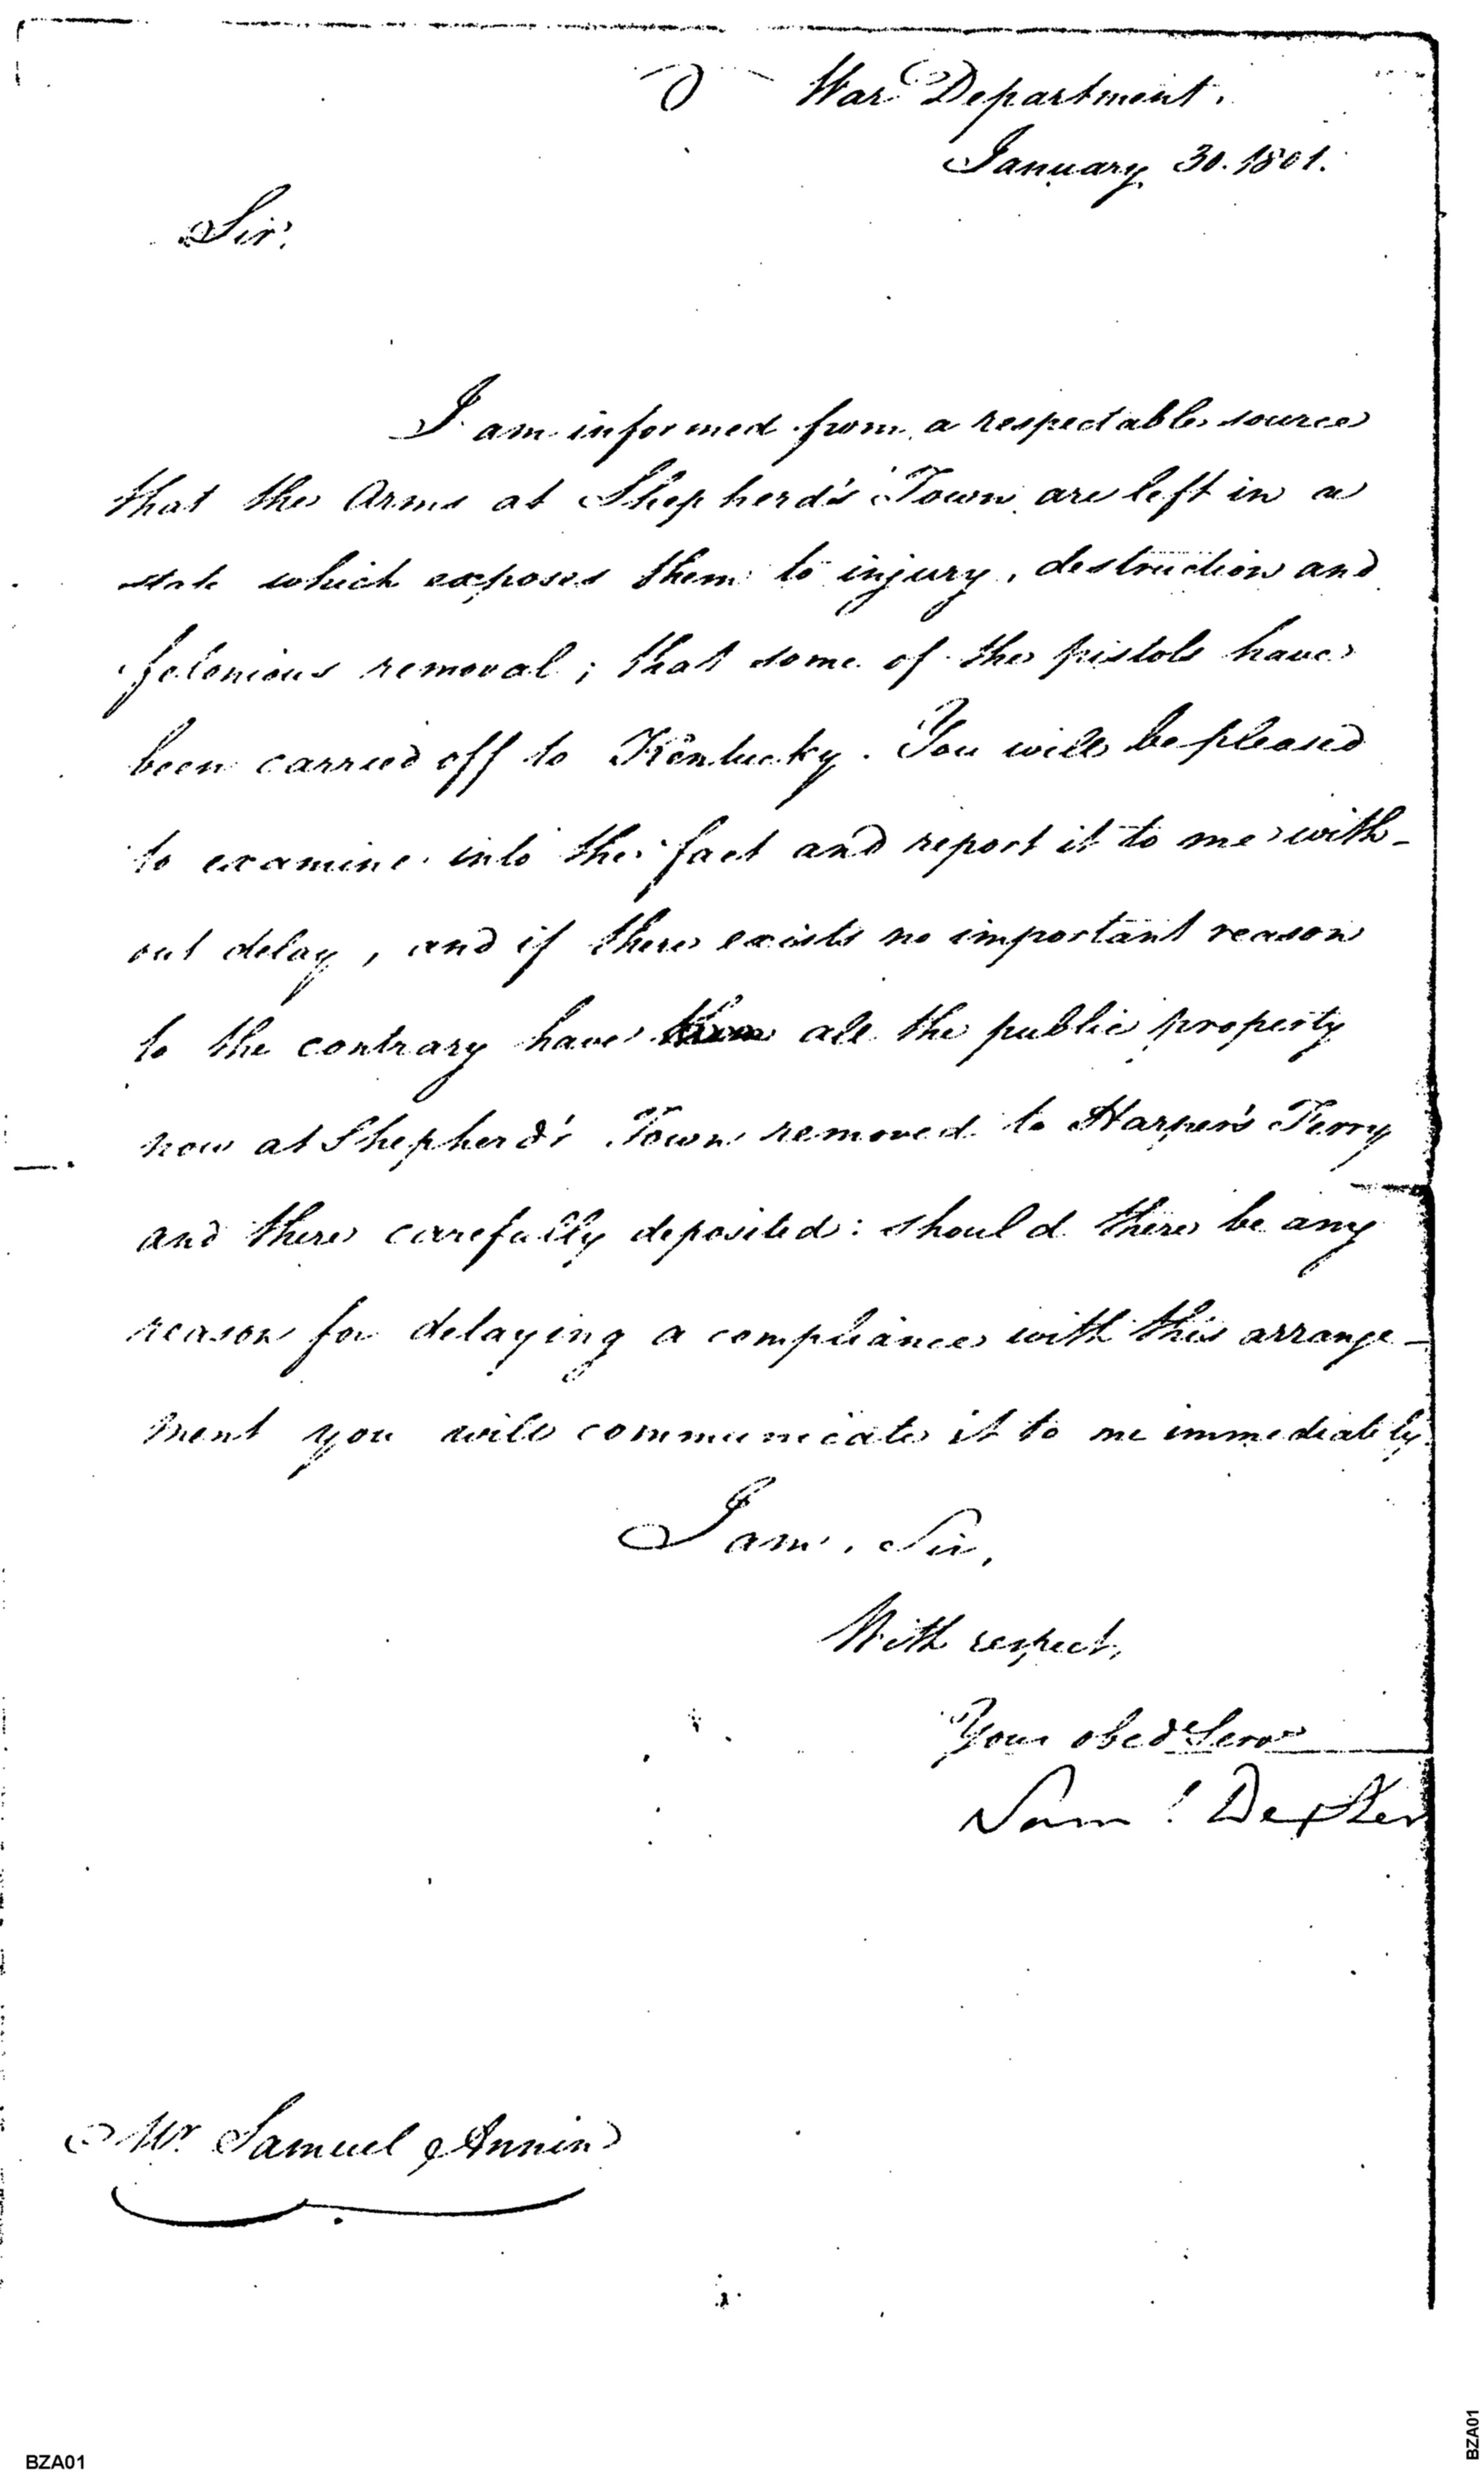 War Department.
January 30. 1801.
Sir.
I am informed from a respectable source
that the Arms at Shepherd's Town are left in a
state which exposes them to injury, destruction and
felonious removal; that some of the pistols have
been carried off to Kentucky. You will be pleased
to examine into the fact and report it to me with-
out delay, and if there exists no important reason
to the contrary have all the public property
now at Shepherd's Town removed to Harper's Ferry
and there carefully deposited: should there be any
reason for delaying a compliance with this arrange-
ment you will communicate it to me immediately.
I am, Sir,
With respect,
Your obed Serv
Saml Dexter
Mr. Samuel Annin
BZA01
BZA01